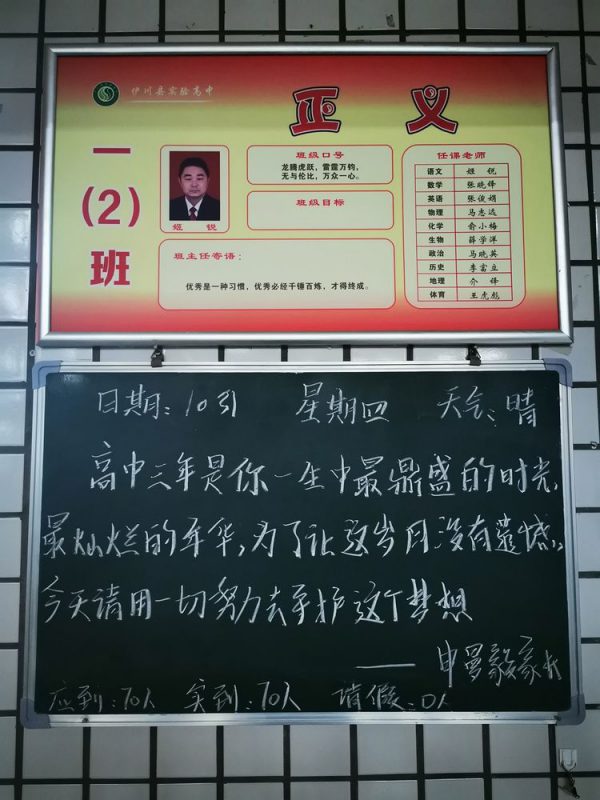 伊川县实验高中
正义
一
(2)
班
姬 锐
班级口号
龙腾虎跃，雷霆万钧，
无与伦比，万众一心。
班级目标
班主任寄语：
优秀是一种习惯，优秀必经千锤百炼，才得终成。
任课老师
语文 姬 锐
数学 张晓锋
英语 张俊娟
物理 马志远
化学 俞小梅
生物 薛学洋
政治 马晓英
历史 李富立
地理 介 锋
体育 王虎彪
日期：10.31 星期四 天气：晴
高中三年是你一生中最鼎盛的时光，
最灿烂的年华，为了让这岁月没有遗憾，
今天请用一切努力去守护这个梦想
—— 申曼毅家长
应到：70人 实到：70人 请假：0人